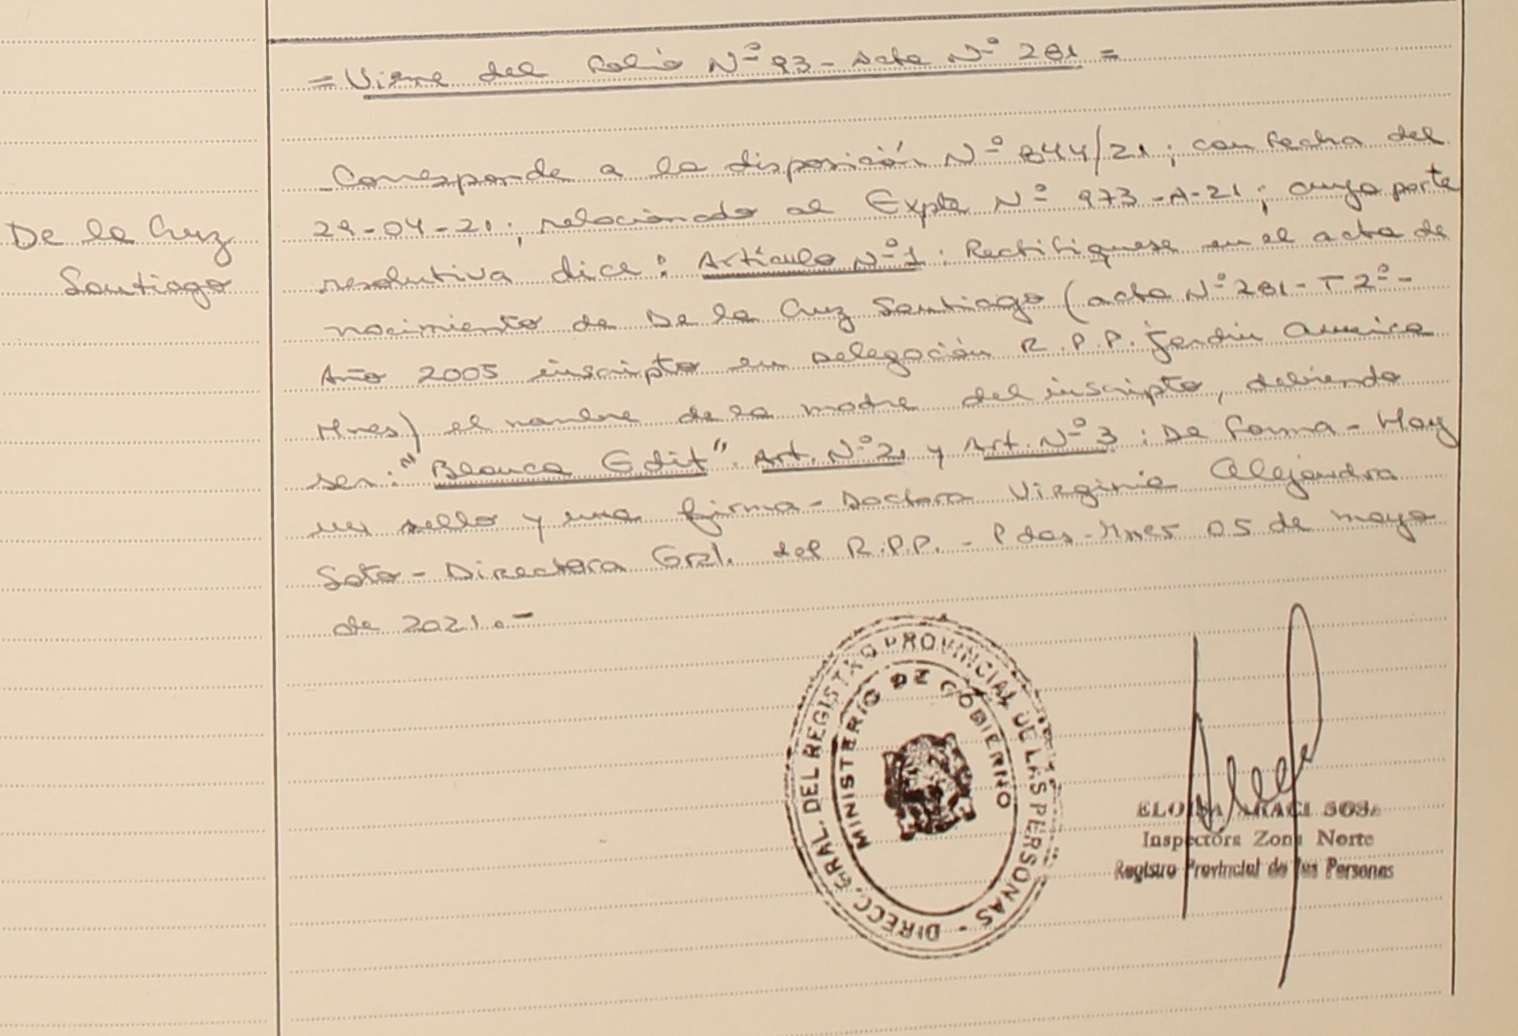 = Viene del Folio Nº 93 - Acta Nº 281 =
De la Cruz
Santiago
- Corresponde a la disposición Nº 844/21; con fecha del
29-04-21; relacionado al Expte Nº 973-A-21; cuya parte
resolutiva dice: Artículo Nº 1: Rectifiquese en el acta de
nacimiento de De la Cruz Santiago (acta Nº 281 - T 2º -
Año 2005 inscripto en Delegación R.P.P. Jardin America
Mnes) el nombre de la madre del inscripto, debiendo
ser: "Blanca Edit". Art. Nº 2 y Art. Nº 3: De forma - Hay
un sello y una firma - Doctora Virginia Alejandra
Soto - Directora Gral. del R.P.P. - Pdas - Mnes 05 de mayo
de 2021.-
DIRECC. GRAL. DEL REGISTRO PROVINCIAL DE LAS PERSONAS -
MINISTERIO DE GOBIERNO
ELOISA ARACI SOSA
Inspectora Zona Norte
Registro Provincial de las Personas